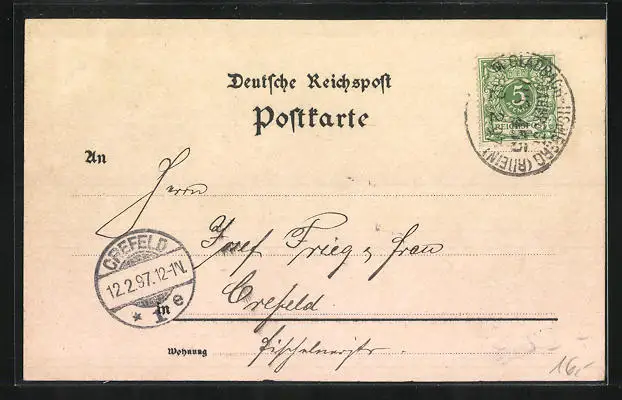 Deutsche Reichspost
Postkarte
5
REICHSPOST
An
Herrn
Josef Frieg & Frau
CREFELD
12.2.97.12-1N.
* 1 e
in
Crefeld
Wohnung
16,-